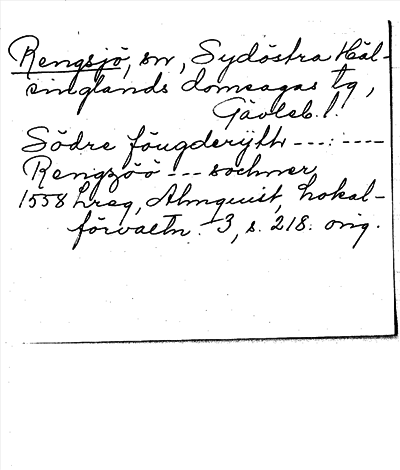 Rengsjö, sn, Sydöstra Häl-
singlands domsagas tg,
Gävleb. l.
Södre fougderijth ---:----
Rengzöö --- sochner,
1558 Lreg, Almquist, Lokal-
förvaltn. 3, s. 218. orig.